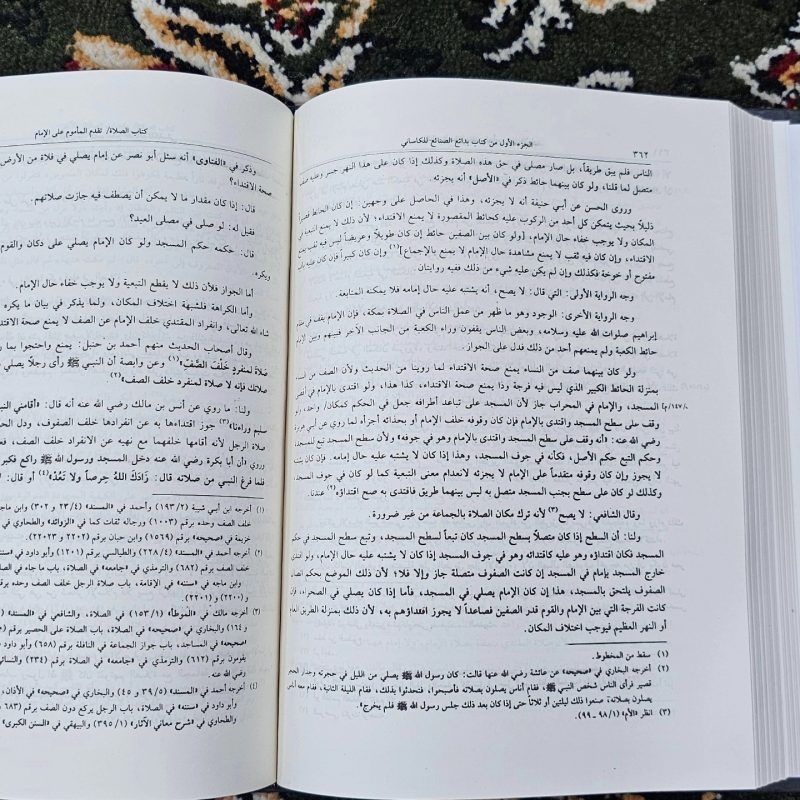 الجزء الأول من كتاب بدائع الصنائع للكاساني
٣٦٢
الناس فلم يبق طريقاً، بل صار مصلى في حق هذه الصلاة وكذلك إذا كان على هذا النهر جسر وعليه صف
متصل لما قلنا، ولو كان بينهما حائط ذكر في «الأصل» أنه يجزئه.
وروى الحسن عن أبي حنيفة أنه لا يجزئه، وهذا في الحاصل على وجهين: إن كان الحائط قصيراً
ذليلاً بحيث يتمكن كل أحد من الركوب عليه كحائط المقصورة لا يمنع الاقتداء؛ لأن ذلك لا يمنع التبعية في
المكان ولا يوجب خفاء حال الإمام، [ولو كان بين الصفين حائط إن كان طويلاً وعريضاً ليس فيه ثقب يمنع
الاقتداء، وإن كان فيه ثقب لا يمنع مشاهدة حال الإمام لا يمنع بالإجماع](١) وإن كان كبيراً فإن كان عليه باب
مفتوح أو خوخة فكذلك وإن لم يكن عليه شيء من ذلك ففيه روايتان.
وجه الرواية الأولى: التي قال: لا يصح، أنه يشتبه عليه حال إمامه فلا يمكنه المتابعة.
وجه الرواية الأخرى: الوجود وهو ما ظهر من عمل الناس في الصلاة بمكة، فإن الإمام يقف في مقام
إبراهيم صلوات الله عليه وسلامه، وبعض الناس يقفون وراء الكعبة من الجانب الآخر فبينهم وبين الإمام
حائط الكعبة ولم يمنعهم أحد من ذلك فدل على الجواز.
ولو كان بينهما صف من النساء يمنع صحة الاقتداء لما روينا من الحديث ولأن الصف من النساء
بمنزلة الحائط الكبير الذي ليس فيه فرجة وذا يمنع صحة الاقتداء، كذا هذا، ولو اقتدى بالإمام في
المسجد، والإمام في المحراب جاز لأن المسجد على تباعد أطرافه جعل في الحكم كمكان/ واحد، ولو
[م/١٤٧أ]
وقف على سطح المسجد واقتدى بالإمام فإن كان وقوفه خلف الإمام أو بحذائه أجزأه لما روي عن أبي هريرة
رضي الله عنه: «أنه وقف على سطح المسجد واقتدى بالإمام وهو في جوفه» ولأن سطح المسجد تبع للمسجد،
وحكم التبع حكم الأصل، فكأنه في جوف المسجد، وهذا إذا كان لا يشتبه عليه حال إمامه. فإن كان يشتبه
لا يجوز وإن كان وقوفه متقدماً على الإمام لا يجزئه لانعدام معنى التبعية كما لو كان في جوف المسجد
وكذلك لو كان على سطح بجنب المسجد متصل به ليس بينهما طريق فاقتدى به صح اقتداؤه(٢) عندنا.
وقال الشافعي: لا يصح(٣) لأنه ترك مكان الصلاة بالجماعة من غير ضرورة.
ولنا: أن السطح إذا كان متصلاً بسطح المسجد كان تبعاً لسطح المسجد، وتبع سطح المسجد في حكم
المسجد فكان اقتداؤه وهو عليه كاقتدائه وهو في جوف المسجد إذا كان لا يشتبه عليه حال الإمام، ولو اقتدى
خارج المسجد بإمام في المسجد إن كانت الصفوف متصلة جاز وإلا فلا؛ لأن ذلك الموضع بحكم اتصال
الصفوف يلتحق بالمسجد، هذا إذا كان الإمام يصلي في المسجد، فأما إذا كان يصلي في الصحراء، فإن
كانت الفرجة التي بين الإمام والقوم قدر الصفين فصاعداً لا يجوز اقتداؤهم به، لأن ذلك بمنزلة الطريق العام
أو النهر العظيم فيوجب اختلاف المكان.
(١) سقط من المخطوط.
(٢) أخرجه البخاري في صحيحه عن عائشة رضي الله عنها قالت: كان رسول الله ﷺ يصلي من الليل في حجرته وجدار الحجرة
قصير فرأى الناس شخص النبي ﷺ، فقام أناس يصلون بصلاته فأصبحوا، فتحدثوا بذلك، فقام الليلة الثانية، فقام معه أناس
يصلون بصلاته صنعوا ذلك ليلتين أو ثلاثاً حتى إذا كان بعد ذلك جلس رسول الله ﷺ فلم يخرج».
(٣) انظر «الأم» (١/ ٩٨-٩٩).
كتاب الصلاة/ تقدم المأموم على الإمام
وذكر في «الفتاوى» أنه سئل أبو نصر عن إمام يصلي في فلاة من الأرض
صحة الاقتداء؟
قال: إذا كان مقدار ما لا يمكن أن يصطف فيه جازت صلاتهم.
فقيل له: لو صلى في مصلى العيد؟
قال: حكمه حكم المسجد ولو كان الإمام يصلي على دكان والقوم
ويكره.
أما الجواز فلأن ذلك لا يقطع التبعية ولا يوجب خفاء حال الإمام.
وأما الكراهة فلشبهة اختلاف المكان، ولما يذكر في بيان ما يكره
شاء الله تعالى، وانفراد المقتدي خلف الإمام عن الصف لا يمنع صحة الاقتداء
وقال أصحاب الحديث منهم أحمد بن حنبل: يمنع واحتجوا بما
صَلاةَ لمنفردٍ خَلْفَ الصَّفِّ»(١) وعن وابصة أن النبي ﷺ رأى رجلاً يصلي
صلاتك فإنه لا صلاة لمنفرد خلف الصف»(٢).
ولنا: ما روي عن أنس بن مالك رضي الله عنه أنه قال: «أقامني النبي
سليم وراءنا»(٣) جوز اقتداءها به عن انفرادها خلف الصفوف، ودل الحديث
صلاة الرجل لأنه أقامها خلفهما مع نهيه عن الانفراد خلف الصف
روي «أن أبا بكرة رضي الله عنه دخل المسجد ورسول الله ﷺ راكع فكبر
فلما فرغ النبي من صلاته قال: زَادَكَ اللهُ حِرصاً ولا تَعُدْ»(٤) أو قال:
(١) أخرجه ابن أبي شيبة (١٩٣/٢) وأحمد في «المسند» (٢٣/٤ و ٣٠٢) وابن ماجه
خلف الصف وحده برقم (١٠٠٣) ورجاله ثقات كما في «الزوائد» والطحاوي في
خزيمة في «صحيحه» برقم (١٥٦٩) وابن حبان برقم (٢٢٠٢ و ٢٢٠٣).
(٢) أخرجه أحمد في «المسند» (٢٢٨/٤) والطيالسي برقم (١٢٠١) وأبو داود في «سننه»
خلف الصف برقم (٦٨٢) والترمذي في «جامعه» في الصلاة، باب ما جاء في الصلاة
وابن ماجه في «سننه» في الإقامة، باب صلاة الرجل خلف الصف وحده
(٢٢٠٠ و ٢٢٠١).
(٣) أخرجه مالك في «الموطأ» (١٥٣/١) في الصلاة، والشافعي في «المسند»
و١٦٤) والبخاري في «صحيحه» في الصلاة، باب الصلاة على الحصير برقم
«صحيحه» في المساجد، باب جواز الجماعة في النافلة برقم (٦٥٨) وأبو داود في
يقومون برقم (٦١٢) والترمذي في «جامعه» في الصلاة برقم (٢٣٤) والنسائي
رضي الله عنه.
(٤) أخرجه أحمد في «المسند» (٣٩/٥ و ٤٥) والبخاري في «صحيحه» في الأذان،
وأبو داود في «سننه» في الصلاة، باب الرجل يركع دون الصف برقم (٦٨٣)
والطحاوي في «شرح معاني الآثار» (١/ ٣٩٥) والبيهقي في «السنن الكبرى»